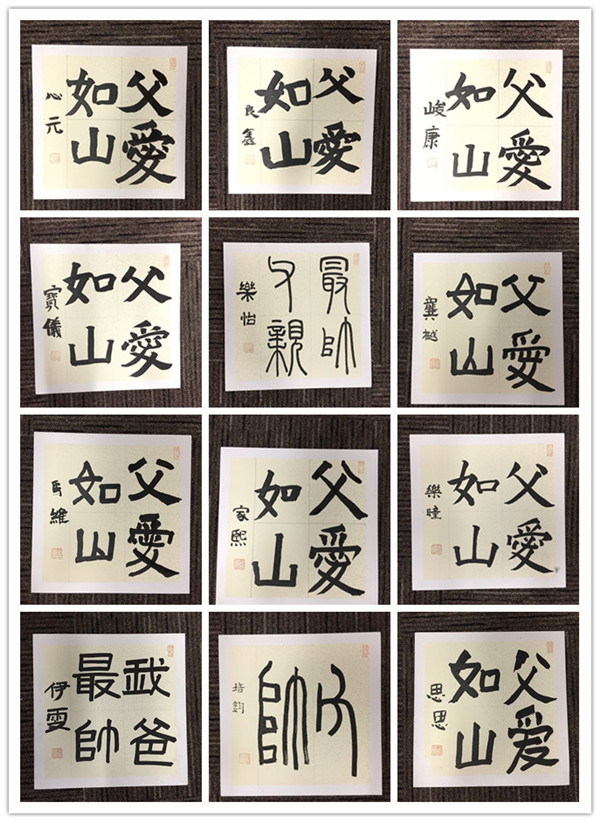 父愛
如山
心元
父愛
如山
良鑫
父愛
如山
峻康
父愛
如山
寶儀
最帥
父親
樂怡
父愛
如山
龔越
父愛
如山
維
父愛
如山
家熙
父愛
如山
樂瞳
我爸
最帥
伊雯
帥
培鈞
父爱
如山
思思